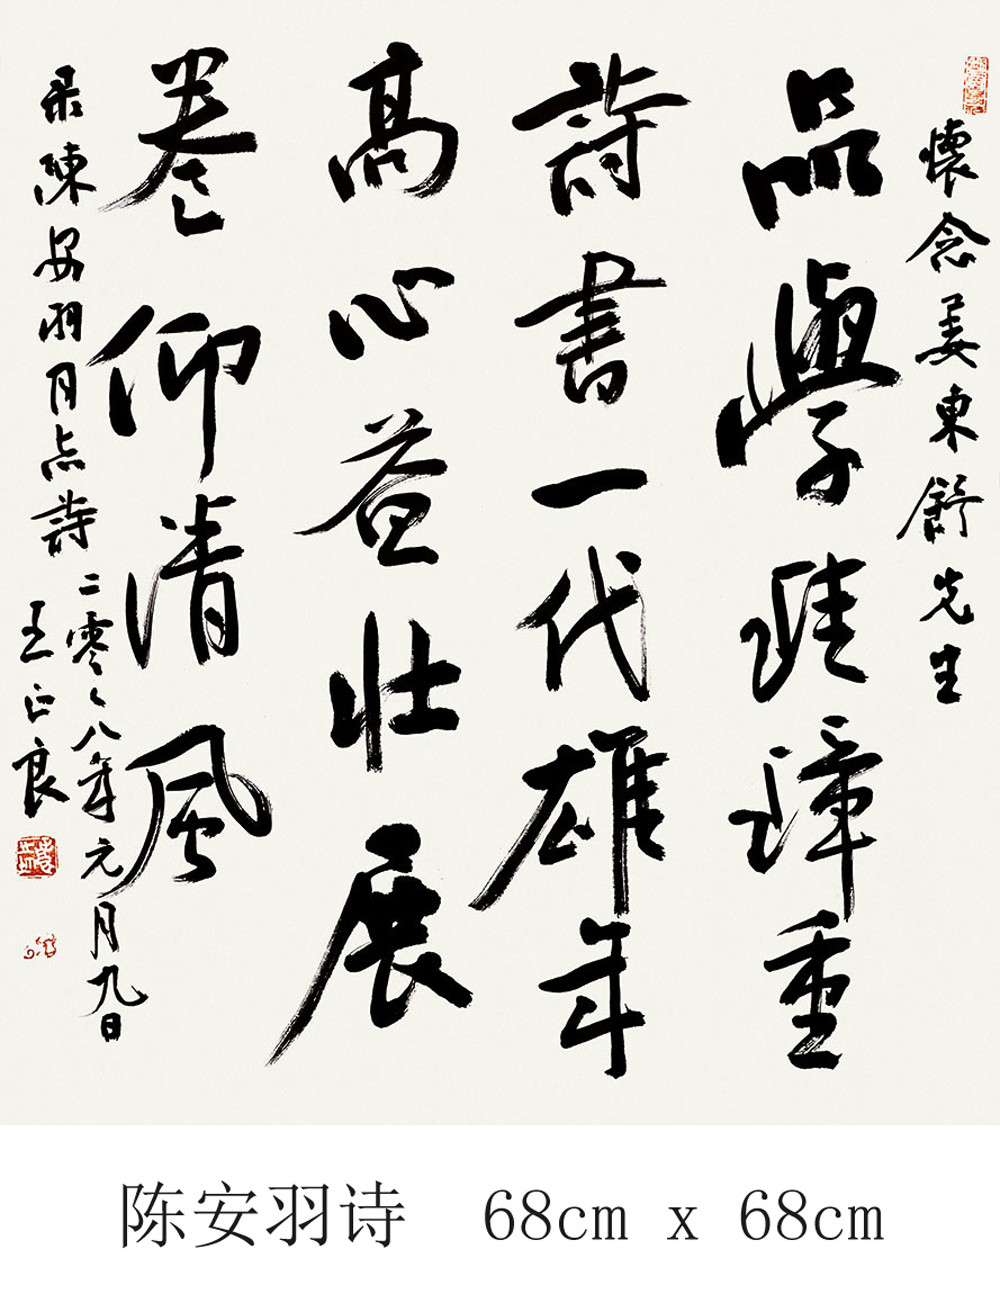 懷念姜東舒先生
品學珪璋重
詩書一代雄年
高心益壯展
卷仰清風
录陳安羽同志詩
二零〻八年元月九日
王正良
陈安羽诗 68cm x 68cm